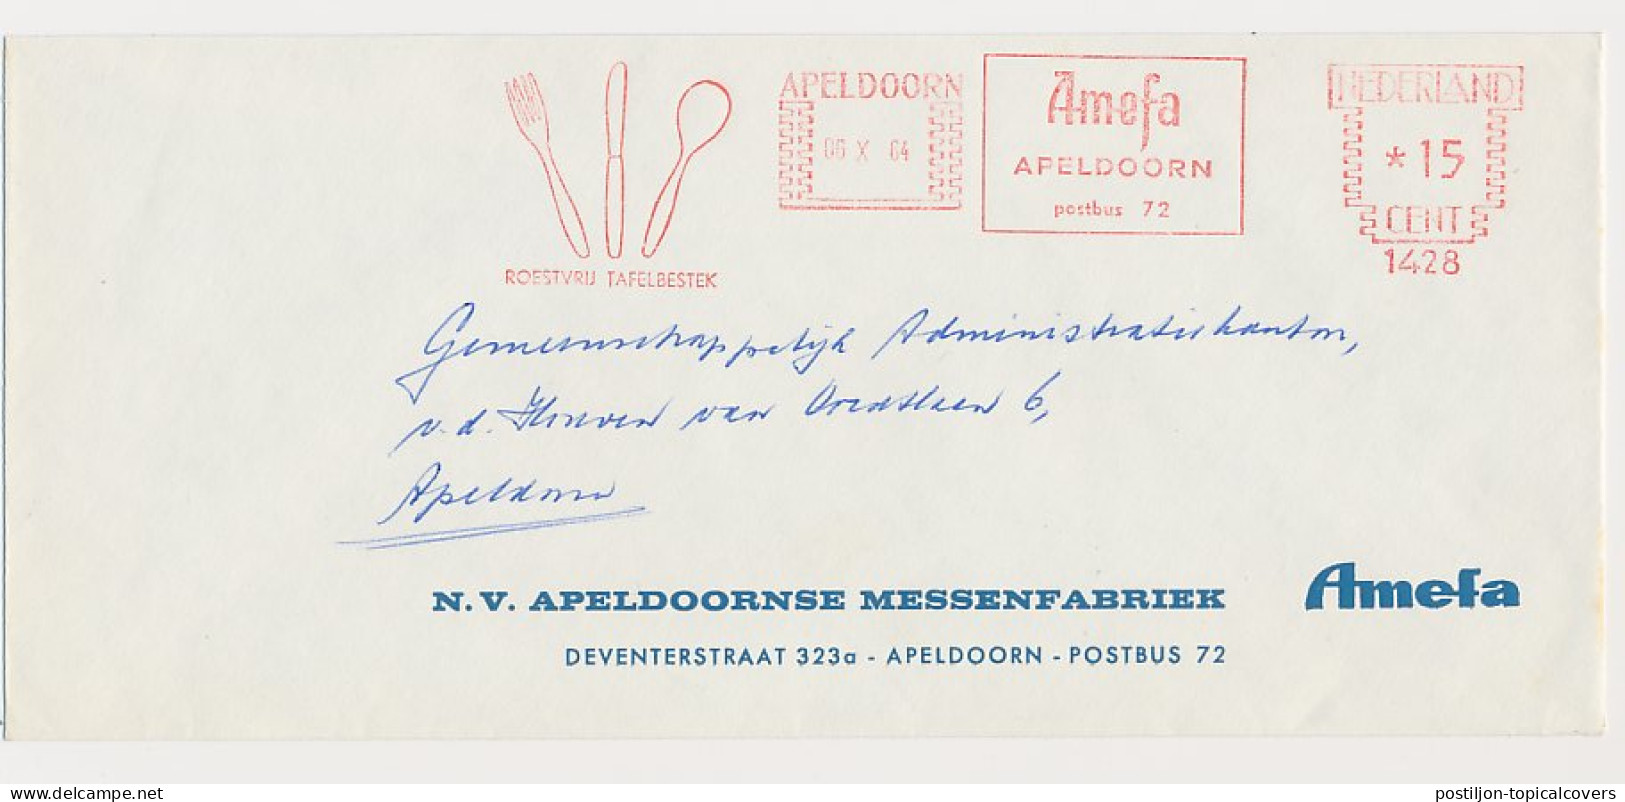 APELDOORN
06 X 64
Amefa
APELDOORN
postbus 72
NEDERLAND
* 15
CENT
1428
ROESTVRIJ TAFELBESTEK
Gemeenschappelijk Administratiekantoor,
v.d. Houven van Oordtlaan 6,
Apeldoorn
N.V. APELDOORNSE MESSENFABRIEK
Amefa
DEVENTERSTRAAT 323a - APELDOORN - POSTBUS 72
www.delcampe.net
postiljon-topicalcovers